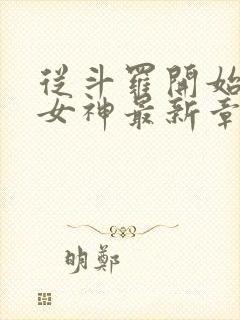 從斗羅開始
女神最新章
明鄭